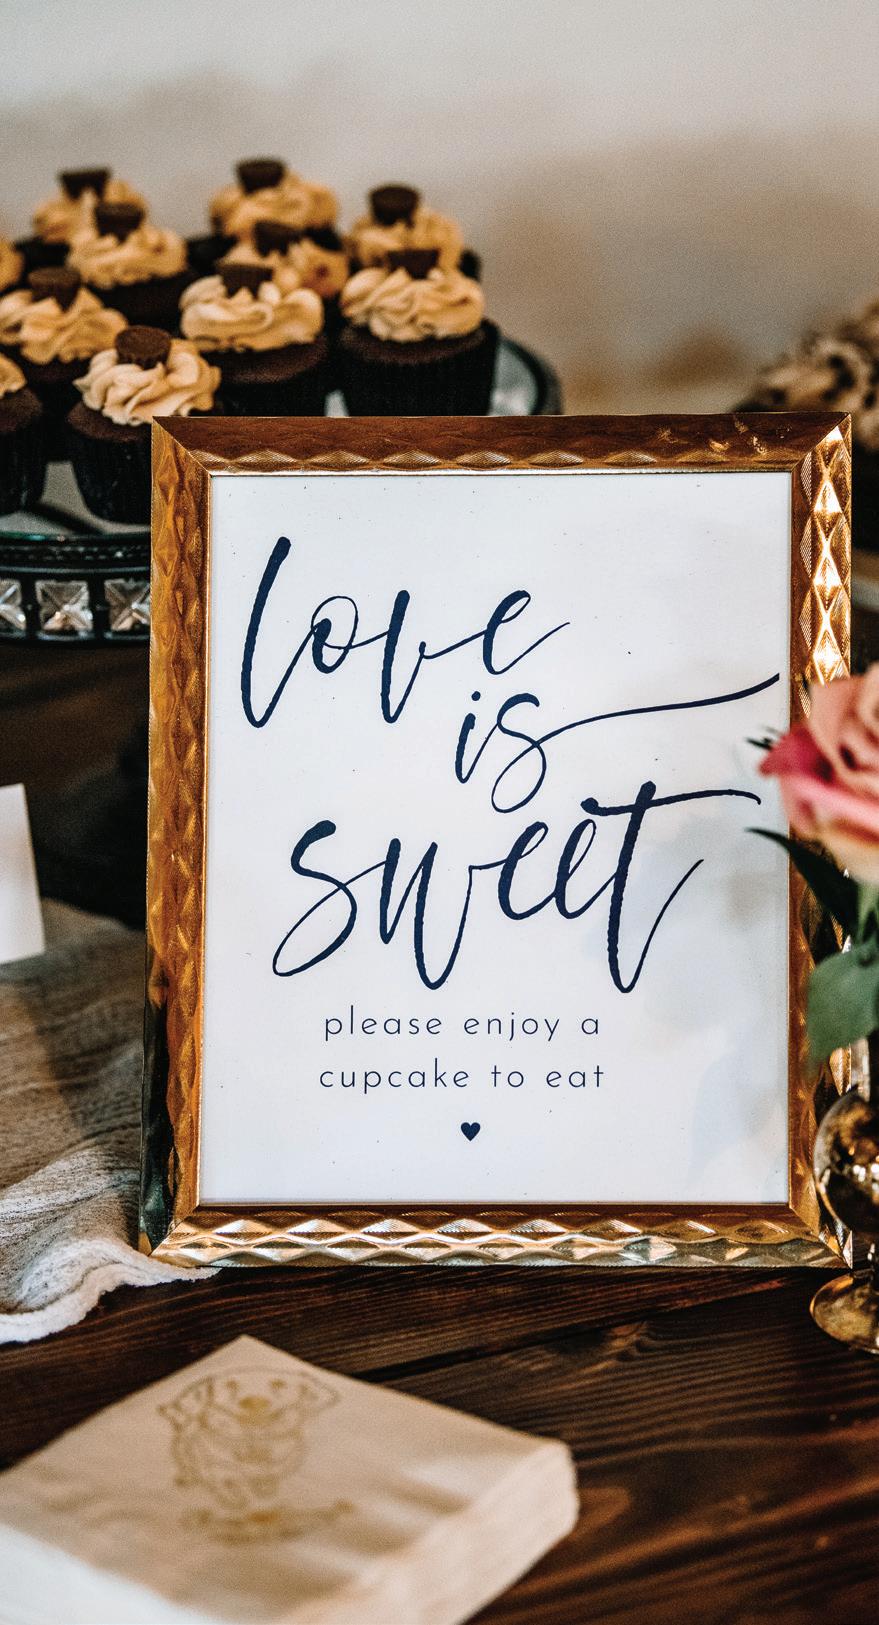 love
is
sweet
please enjoy a
cupcake to eat